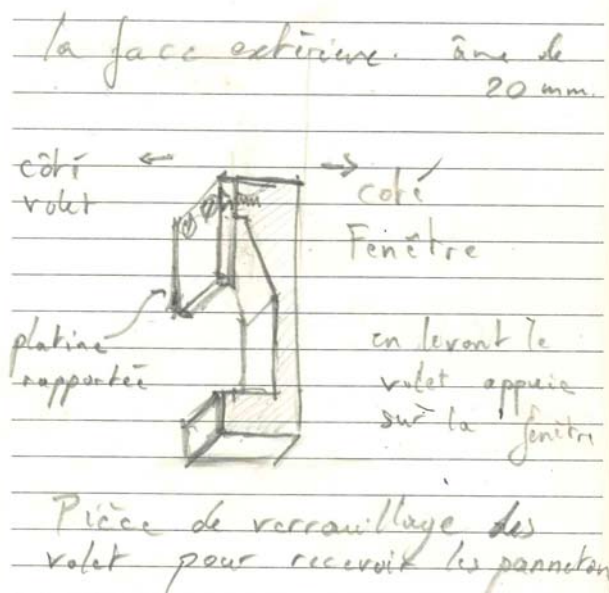 la face extérieure. âme de
20 mm.
côté
volet
coté
Fenêtre
platine
rapportée
en levant le
volet appuie
sur la fenêtre
Pièce de verrouillage des
volet pour recevoir les panneton